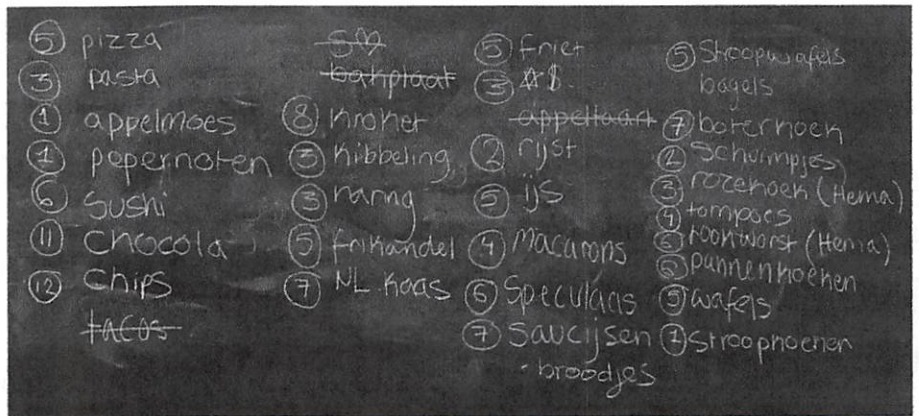 5 pizza
3 pasta
1 appelmoes
1 pepernoten
6 Sushi
11 Chocola
12 Chips
tacos
bakplaat
8 kroket
3 kibbeling
3 haring
5 frikandel
7 NL kaas
5 friet
3
appeltaart
2 rijst
5 ijs
4 Macarons
6 Speculaas
7 Saucijsen
- broodjes
5 Stroopwafels
bagels
7 boterkoek
2 Schuimpjes
3 rozekoek (Hema)
4 tompoes
6 rookworst (Hema)
6 pannenkoeken
5 wafels
1 Stroopkoeken